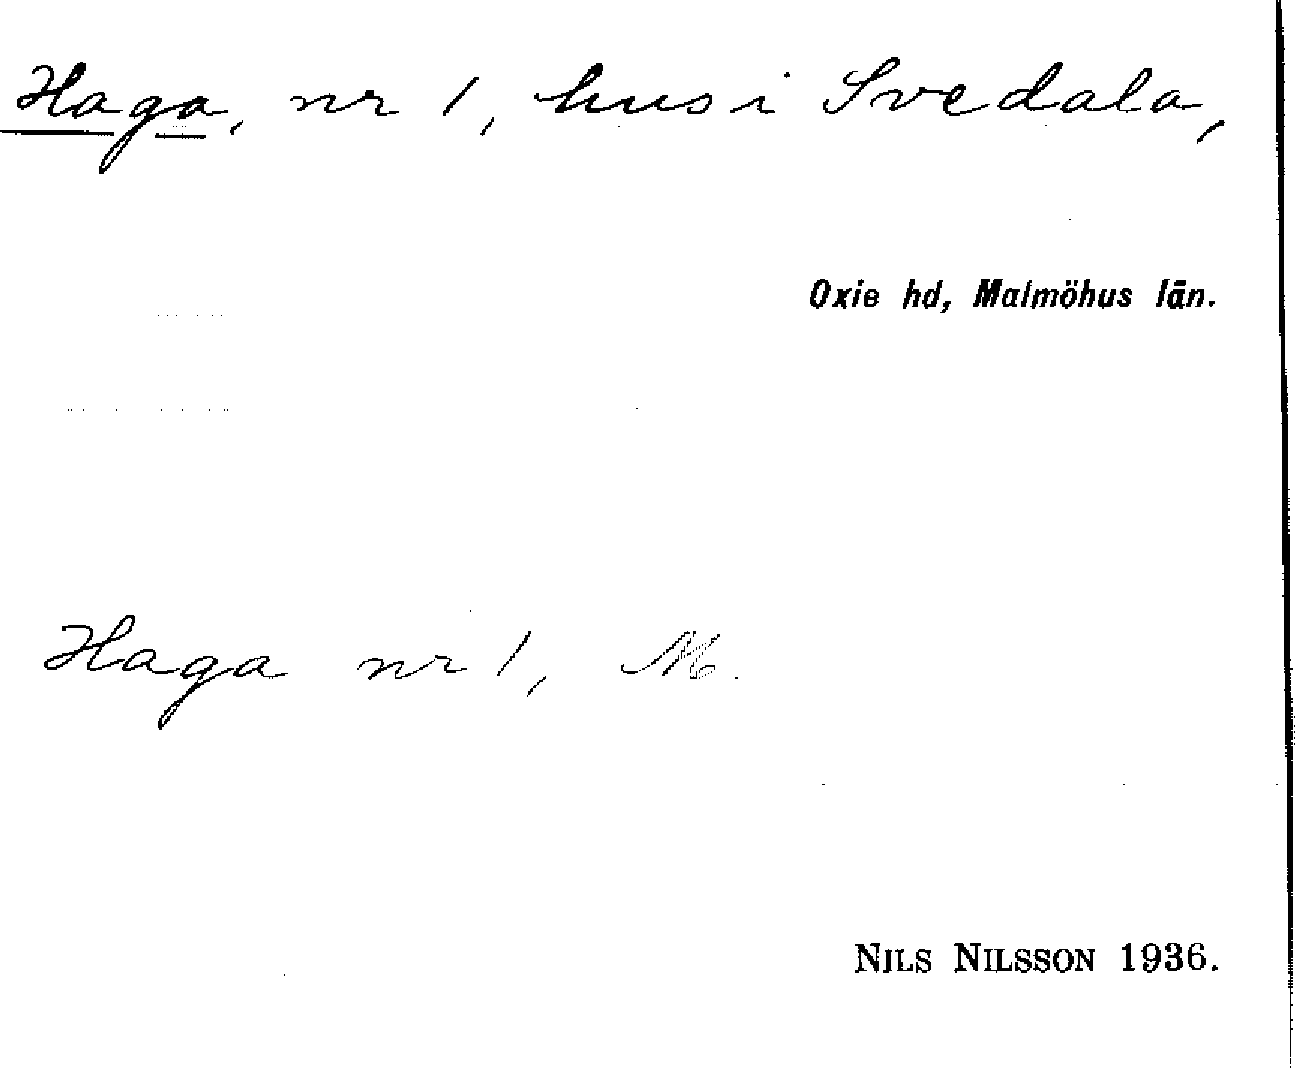 Haga, nr 1, hus i Svedala,
Oxie hd, Malmöhus län.
Haga nr 1, M.
NILS NILSSON 1936.